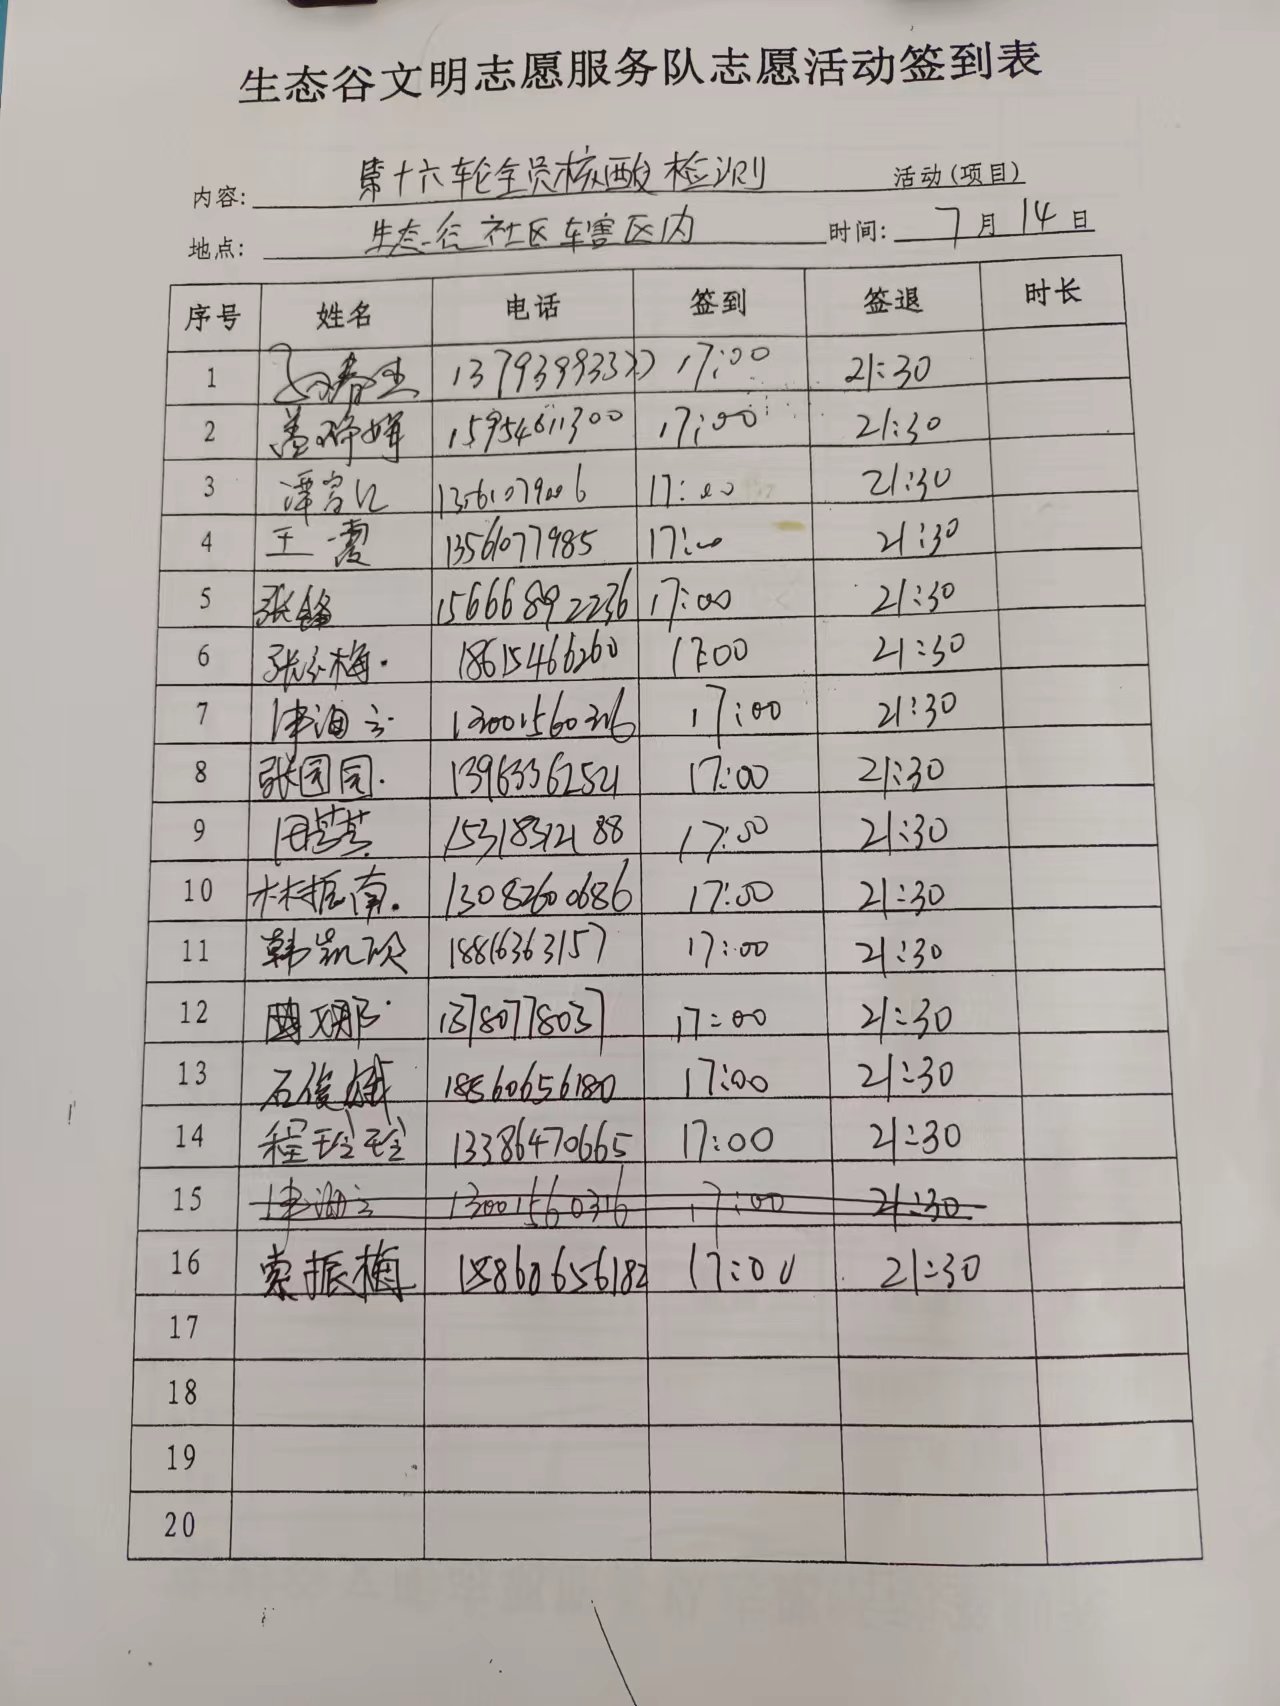 生态谷文明志愿服务队志愿活动签到表
内容: 第十六轮全员核酸检测 活动(项目)
地点: 生态谷社区 区内 时间: 7月14日
序号 姓名 电话 签到 签退 时长
1 春生 137939933 17:00 21:30
2 盖 15954611300 17:00 21:30
3 谭 17:00 21:30
4 王霞 13561077985 17:00 21:30
5 张锋 15666892236 17:00 21:30
6 张 梅. 18615466260 17:00 21:30
7 13001560316 17:00 21:30
8 张园园. 13963362521 17:00 21:30
9 田芸芸 15318312188 17:00 21:30
10 林振南. 13082600686 17:00 21:30
11 韩凯欣 18816363157 17:00 21:30
12 13780778037 17:00 21:30
13 石俊斌 18560656180 17:00 21:30
14 程玲玲 13386470665 17:00 21:30
15 13001560316 17:00 21:30
16 索振梅 18860656182 17:00 21:30
17
18
19
20